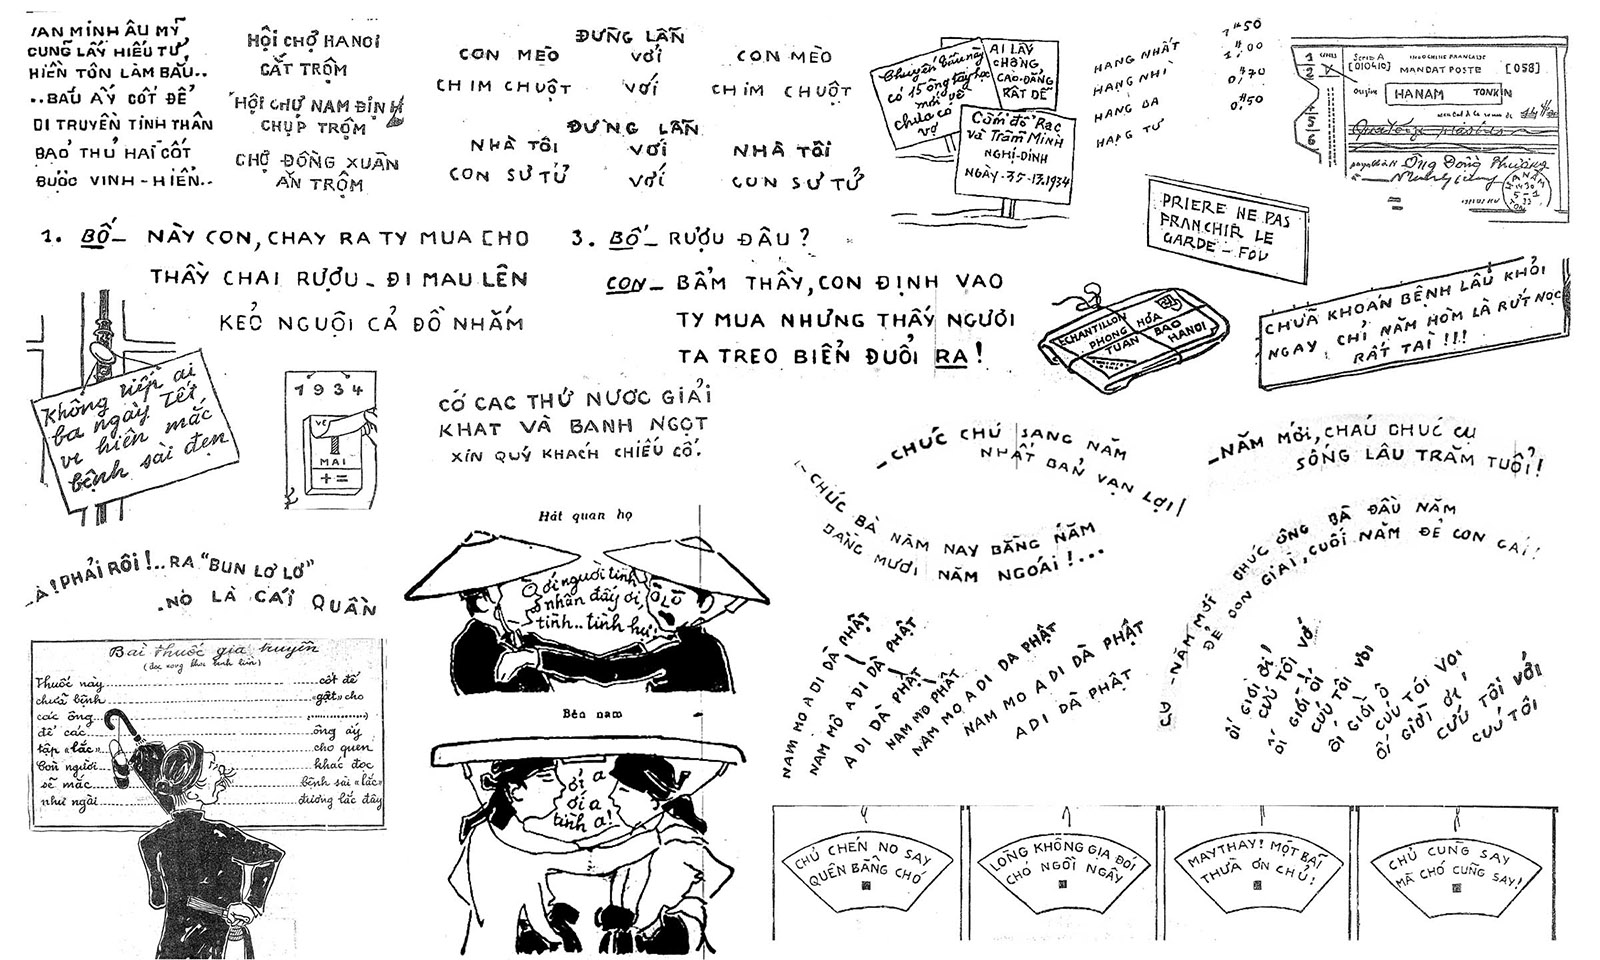 VAN MINH ÂU MỸ
CUNG LẤY HIẾU TỬ,
HIỀN TÔN LÀM BẤU..
..BẤU ẤY CỐT ĐỂ
DI TRUYỀN TINH THẦN
BẢO THỦ HAI CỐT
ĐƯỢC VINH-HIỂN..
HỘI CHỢ HANOI
CẮT TRỘM
HỘI CHỢ NAM ĐỊNH
CHỤP TRỘM
CHỢ ĐỒNG XUÂN
ĂN TRỘM
ĐỪNG LẪN
CON MÈO VỚI CON MÈO
CHIM CHUỘT VỚI CHIM CHUỘT
ĐỪNG LẪN
NHÀ TÔI VỚI NHÀ TÔI
CON SƯ TỬ VỚI CON SƯ TỬ
Chuyến tầu này
có 15 ông tây học
mới về
chưa có
vợ
AI LẤY
CHỒNG
CAO-ĐẲNG
RẤT DỄ
Cấm đổ Rạc
và Trầm Minh
NGHỊ-ĐỊNH
NGÀY-35-13.1934
HẠNG NHẤT 1$50
HẠNG NHÌ 1$00
HẠNG BA 0$70
HẠNG TƯ 0$50
SERIE A INDOCHINE FRANCAISE
[010410] MANDAT POSTE [058]
Origine HANAM TONKIN
Ông Đông Phương
HANAM
PRIERE NE PAS
FRANCHIR LE
GARDE-FOU
1. BỐ_ NÀY CON, CHẠY RA TY MUA CHO
THẦY CHAI RƯỢU_ ĐI MAU LÊN
KẺO NGUỘI CẢ ĐỒ NHẮM
3. BỐ_ RƯỢU ĐÂU?
CON_ BẨM THẦY, CON ĐỊNH VAO
TY MUA NHƯNG THẤY NGƯƠI
TA TREO BIỂN ĐUỔI RA!
ECHANTILLON
PHONG HÓA
TUẦN BÁO
HANOI
CHƯÃ KHOÁN BỆNH LẬU KHỎI
NGAY, CHỈ NĂM HÔM LÀ RỨT NỌC
RẤT TAÌ!!!
Không tiếp ai
ba ngày Tết,
vì hiện mắc
bệnh sài đẹn
1934
VE
1
MAI
+=
CÓ CAC THỨ NƯƠC GIẢI
KHAT VÀ BANH NGỌT
XIN QUÝ KHACH CHIẾU CỐ.
_CHÚC CHÚ SANG NĂM
NHẤT BẢN VẠN LỢI
_CHÚC BÀ NĂM NAY BẰNG NĂM
BẰNG MƯƠI NĂM NGOÁI!...
_NĂM MỚI, CHÁU CHÚC CỤ
SỐNG LÂU TRĂM TUỔI!
CU _NĂM MỚI CHÚC ÔNG BÀ ĐẦU NĂM
ĐẺ CON GIAI, CUỐI NĂM ĐẺ CON GÁI!
_À! PHẢI RÔI!..RA "BUN LƠ LƠ"
.NÓ LÀ CÁI QUẦN
Hát quan họ
Ơ ới người tình
nhân đấy ơi,
tình..tình hự!
Ơ LỒ
Bên nam
ới a
ới a
tình a!
Bài thuốc gia truyền
Thuốc này....cốt để
chưã bệnh....«gật» cho
các ông....
để các....ông ấy
tập «lắc»....cho quen
Còn người....khác đọc
sẽ mắc....bệnh sài «lắc»
như ngài....đương lắc đây
NAM MO A DI DÀ PHẬT
NAM MÔ A DI DÀ PHẬT
A DI DÀ PHẬT
NAM MO PHẬT
NAM MO A DI DA PHẬT
NAM MO A DI DÀ PHẬT
A DI DÀ PHẬT
ỐI GIỜI ƠI!
CỨU TÔI VỚ
ỐI GIỜI ÔI
CỨU TÔI VOI
ỐI GIỜI Ô
CỨU TÓI VOI
ỐI GIỜI ƠI,
CỨU TÔI VỚI
CỨU TÔI
CHỦ CHÉN NO SAY
QUÊN BẴNG CHÓ
LÒNG KHÔNG GIA ĐÓI
CHÓ NGỒI NGÂY
MAY THAY! MỘT BÃI
THỪA ƠN CHỦ!
CHỦ CŨNG SAY
MÀ CHÓ CŨNG SAY!